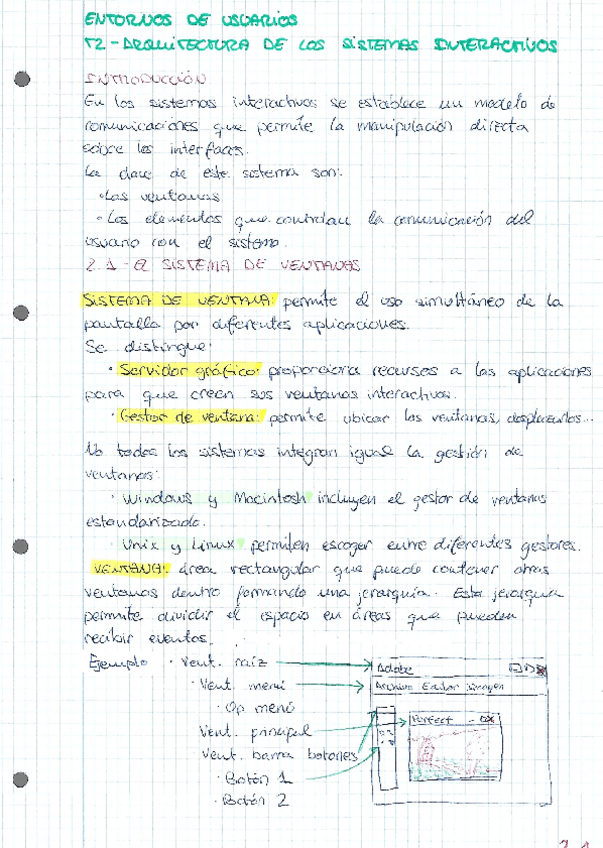 ENTORNOS DE USUARIOS
T2 - ARQUITECTURA DE LOS SISTEMAS INTERACTIVOS
INTRODUCCIÓN
En los sistemas interactivos se establece un modelo de
comunicaciones que permite la manipulación directa
sobre los interfaces.
La clave de este sistema son:
· Las ventanas
· Los elementos que controlan la comunicación del
usuario con el sistema.
2.1 - EL SISTEMA DE VENTANAS
SISTEMA DE VENTANA: permite el uso simultáneo de la
pantalla por diferentes aplicaciones.
Se distingue:
· Servidor gráfico: proporciona recursos a las aplicaciones
para que creen sus ventanas interactivas.
· Gestor de ventana: permite ubicar las ventanas, desplazarlas...
No todos los sistemas integran igual la gestión de
ventanas:
· Windows y Macintosh incluyen el gestor de ventanas
estandarizado.
· Unix y Linux permiten escoger entre diferentes gestores.
VENTANA: área rectangular que puede contener otras
ventanas dentro formando una jerarquía. Esta jerarquía
permite dividir el espacio en áreas que pueden
recibir eventos.
Ejemplo · Vent. raíz
Adobe
· Vent. menú
Archivo Editar Imagen
· Op. menú
Vent. principal
Perfect
Vent. barra botones
· Botón 1
· Botón 2